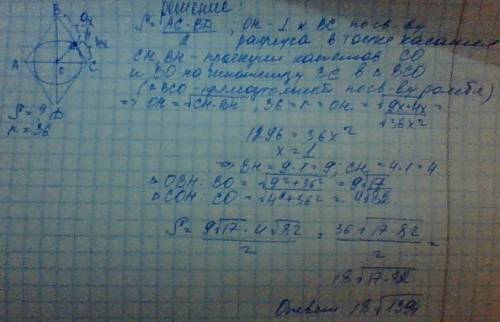 решение:
B
9x
H
4x
A
O
C
D
S = ?
r = 36
S = AC·BD / 2 ; OH - ⊥ к BC по св-ву
радиуса в точке касания
CH, BH - проекции катетов CO
и BO на гипотенузу BC в △ BCO
(△BCO - прямоугольный по св-ву ромба)
⇒ OH = √CH·BH ; 36 = r = OH = √9x·4x =
√36x²
1296 = 36x²
x = 1
⇒ BH = 9·1 = 9 ; CH = 4·1 = 4.
△ OBH: BO = √9²+36² = 9√17
△ COH: CO = √4²+36² = 4√82
S = 9√17·4√82 / 2 = 36√17·82 / 2 =
18√17·82
Ответ: 18√1394